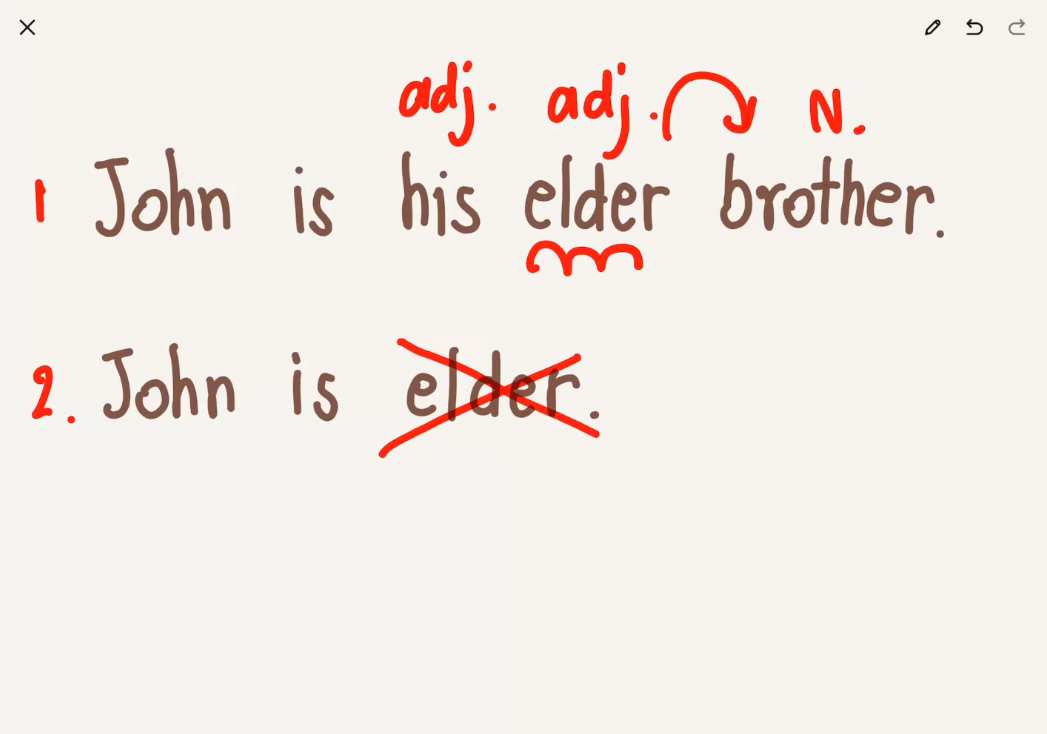 adj. adj. N.
1 John is his elder brother.
2. John is elder.